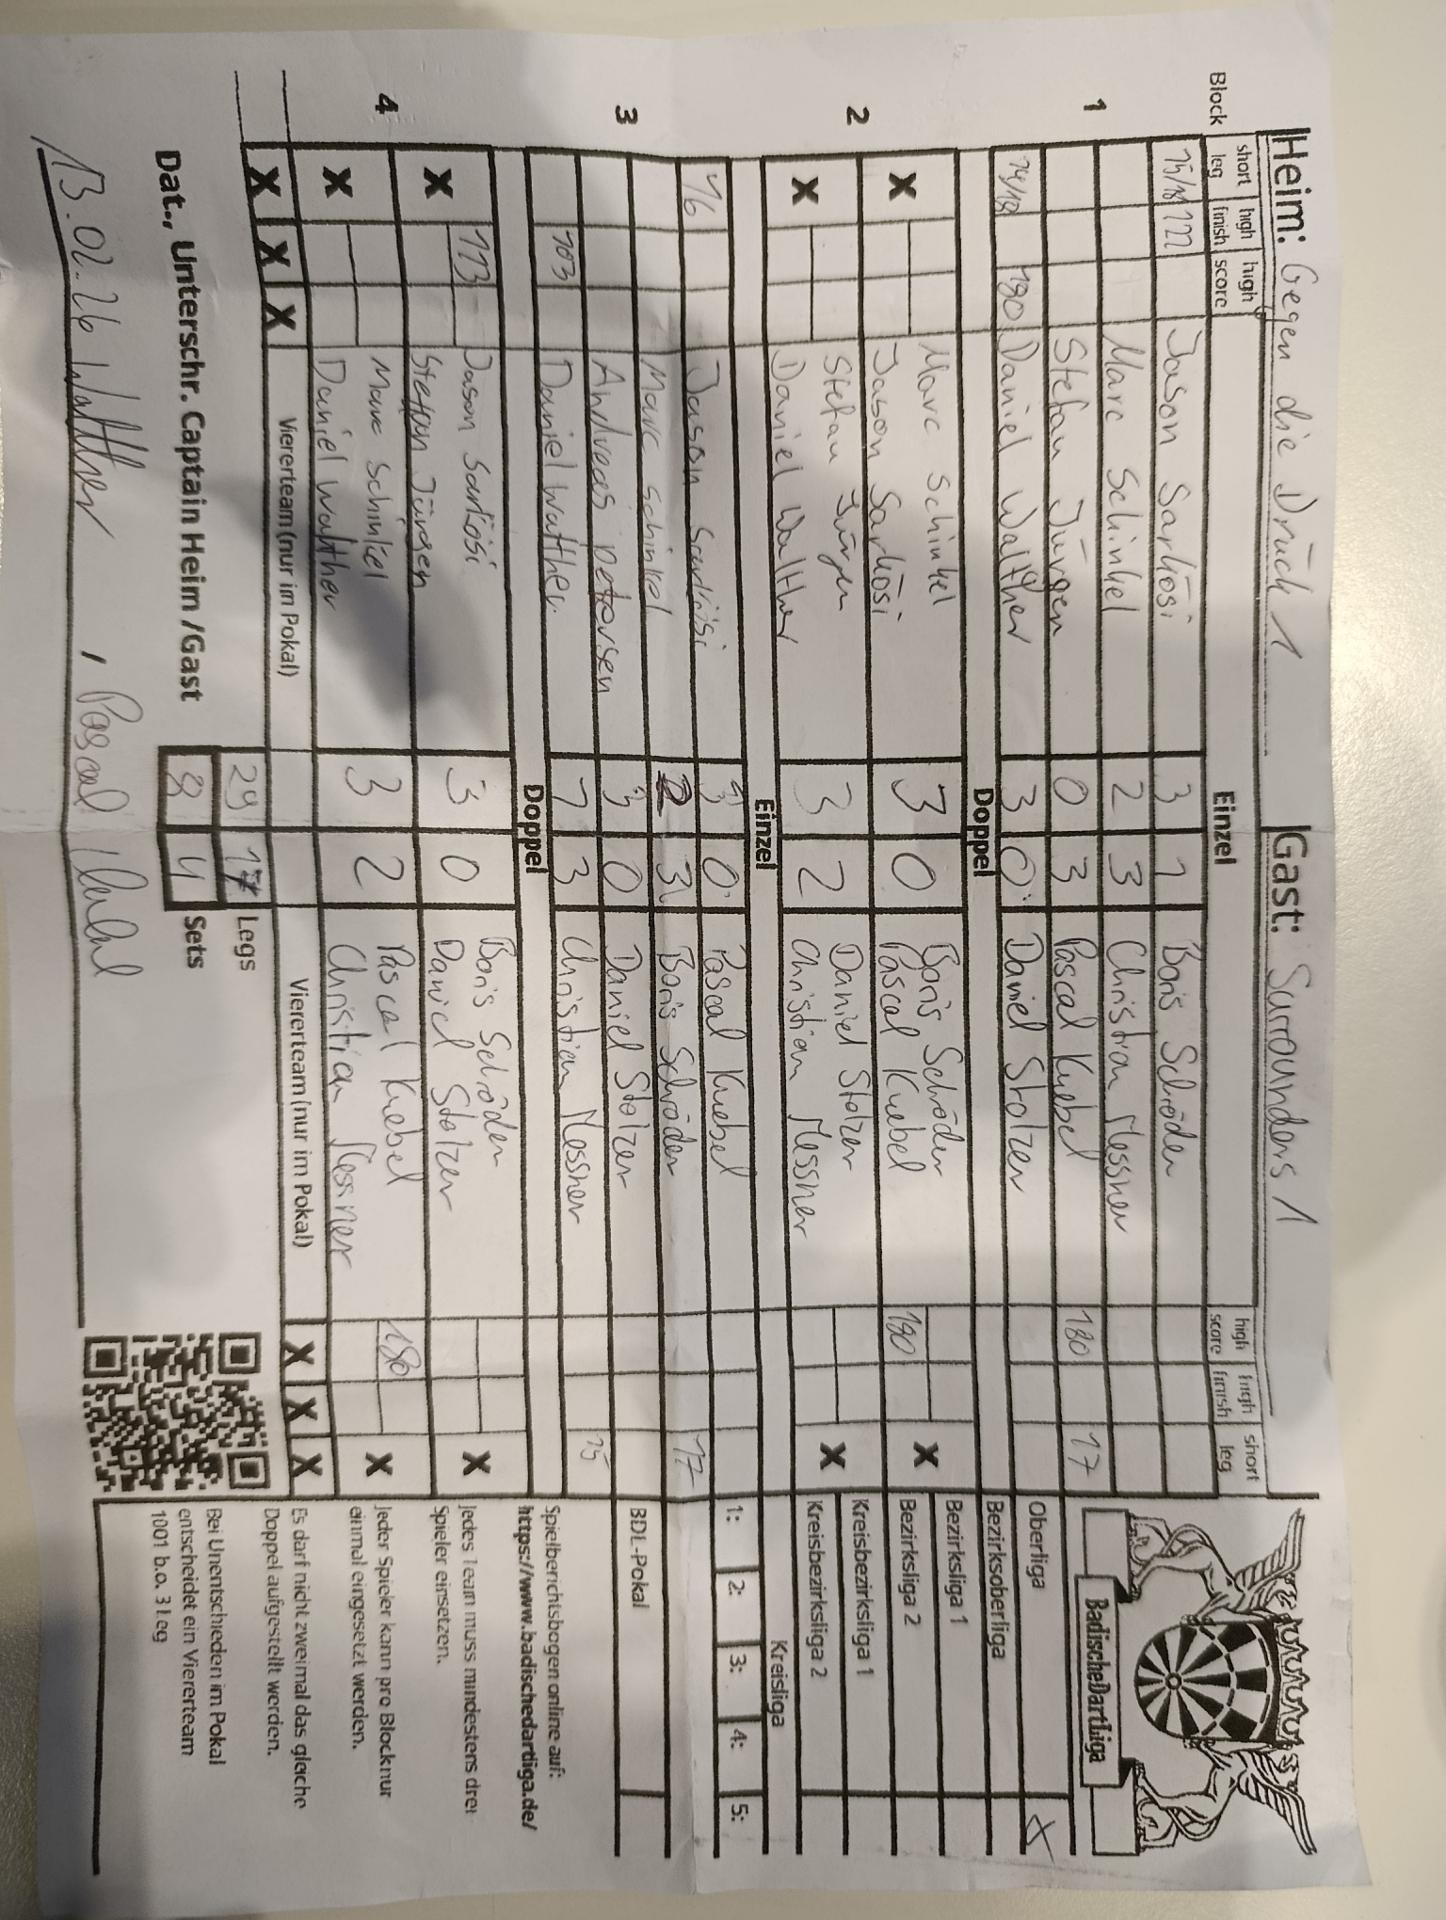 Heim: Gegen die Drück 1 Gast: Surrounders 1
Block short leg high finish high score Einzel high score high finish short leg
1
15/18 122 Jason Sarkösi 3 1 Boris Schröder
Marc Schinkel 2 3 Christian Messner
Stefan Jürgen 0 3 Pascal Knebel 180 17
180 Daniel Walther 3 0 Daniel Stolzer
Doppel
2
X Marc Schinkel 3 0 Boris Schröder X
Jason Sarkösi Pascal Knebel 180
X Stefan Jürgen 3 2 Daniel Stolzer X
Daniel Walther Christian Messner
Einzel
3
16 Jason Sarkösi 3 0 Pascal Knebel
Marc Schinkel 2 3 Boris Schröder 17
Andreas Petersen 3 0 Daniel Stolzer
103 Daniel Walther 1 3 Christian Messner 15
Doppel
4
X 113 Jason Sarkösi 3 0 Boris Schröder X
Stefan Jürgen Daniel Stolzer
X Marc Schinkel 3 2 Pascal Knebel 180 X
Daniel Walther Christian Messner
X X X Viererteam (nur im Pokal) Viererteam (nur im Pokal) X X X
29 17 Legs
Dat., Unterschr. Captain Heim /Gast 8 4 Sets
13.02.26 Walther , Pascal Knebel
BadischeDartLiga
Oberliga X
Bezirksoberliga
Bezirksliga 1
Bezirksliga 2
Kreisbezirksliga 1
Kreisbezirksliga 2
Kreisliga
1: 2: 3: 4: 5:
BDL-Pokal
Spielberichtsbogen online auf:
https://www.badischedartliga.de/
Jedes Team muss mindestens drei
Spieler einsetzen.
Jeder Spieler kann pro Block nur
einmal eingesetzt werden.
Es darf nicht zweimal das gleiche
Doppel aufgestellt werden.
Bei Unentschieden im Pokal
entscheidet ein Viererteam
1001 b.o. 3 Leg